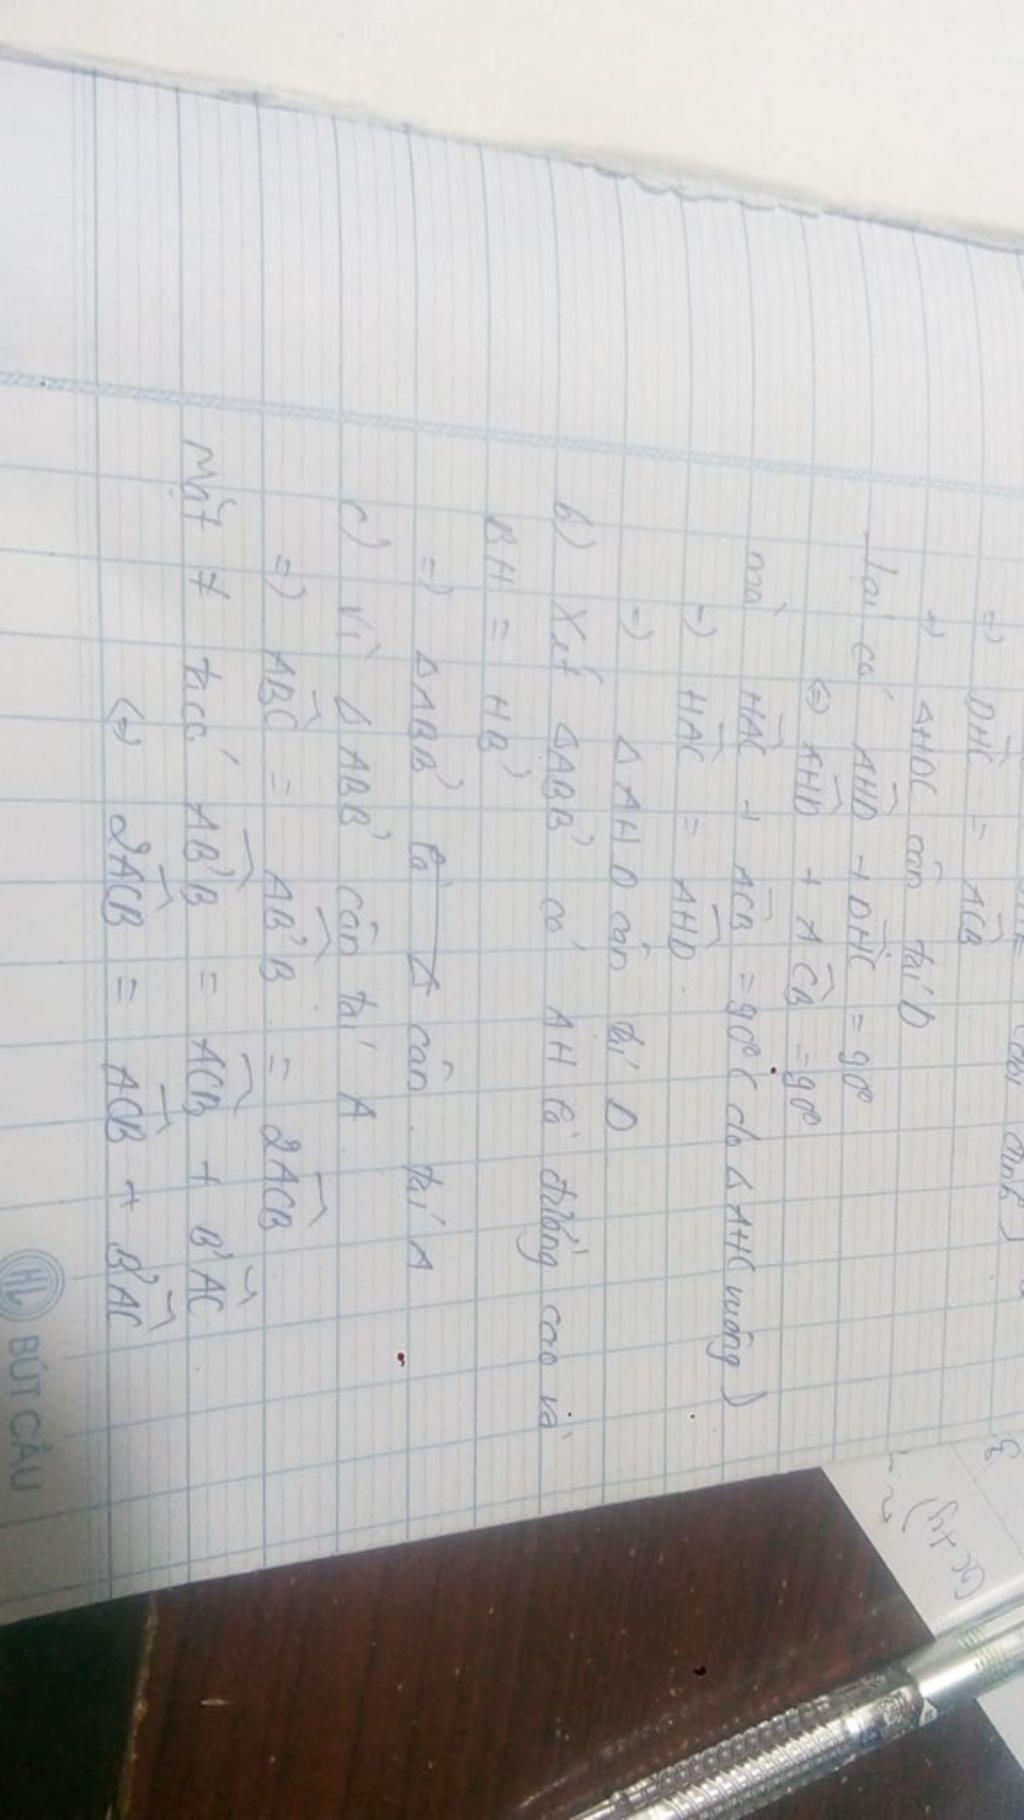 (đối đỉnh)
=) DHC = ACB
=) ΔHDC cân tại D
Lại có AHD + DHC = 90°
(=) AHD + ACB = 90°
mà HAC + ACB = 90° (do ΔAHC vuông)
=) HAC = AHD.
=) ΔAHD cân tại D
b) Xét ΔABB' có AH là đường cao và
BH = HB'
=) ΔABB' là Δ cân tại A
c) Vì ΔABB' cân tại A
=) ABC = AB'B = 2ACB
Mặt ≠ ta có AB'B = ACB + B'AC
(=) 2ACB = ACB + B'AC
HL BÚT CẦU